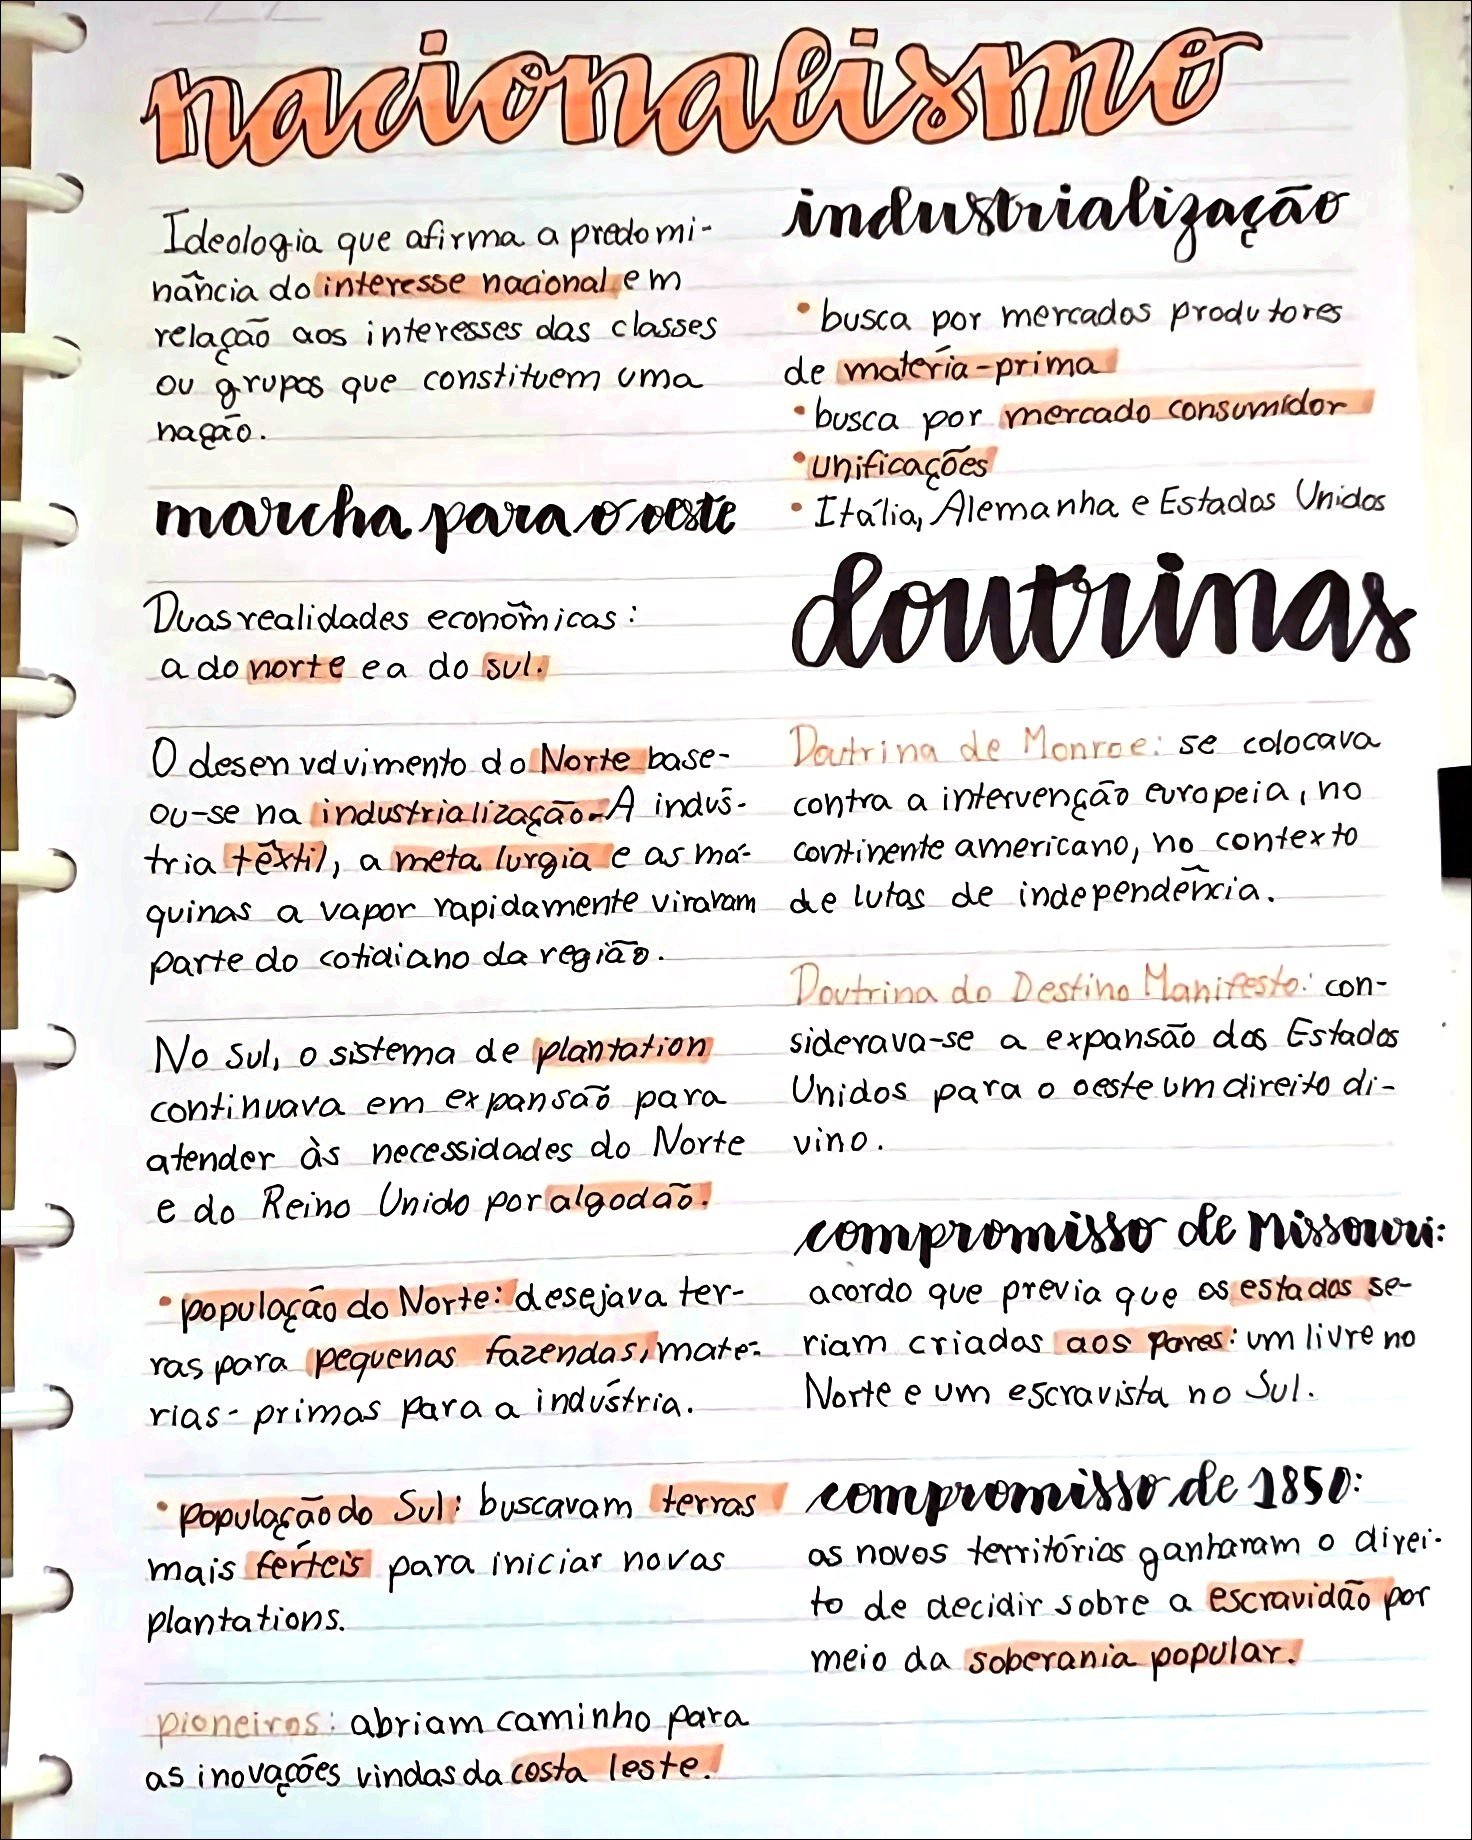 nacionalismo
Ideologia que afirma a predomi-
nância do interesse nacional em
relação aos interesses das classes
ou grupos que constituem uma
nação.
marcha para o oeste
Duas realidades econômicas:
a do norte e a do sul.
O desenvolvimento do Norte base-
ou-se na industrialização. A indús-
tria têxtil, a metalurgia e as má-
quinas a vapor rapidamente viraram
parte do cotidiano da região.
No Sul, o sistema de plantation
continuava em expansão para
atender às necessidades do Norte
e do Reino Unido por algodão.
• população do Norte: desejava ter-
ras para pequenas fazendas, maté-
rias-primas para a indústria.
• população do Sul: buscavam terras
mais férteis para iniciar novas
plantations.
pioneiros: abriam caminho para
as inovações vindas da costa leste.
industrialização
• busca por mercados produtores
de matéria-prima
• busca por mercado consumidor
• unificações
• Itália, Alemanha e Estados Unidos
doutrinas
Doutrina de Monroe: se colocava
contra a intervenção europeia, no
continente americano, no contexto
de lutas de independência.
Doutrina do Destino Manifesto: con-
siderava-se a expansão dos Estados
Unidos para o oeste um direito di-
vino.
compromisso de Missouri:
acordo que previa que os estados se-
riam criados aos pares: um livre no
Norte e um escravista no Sul.
compromisso de 1850:
os novos territórios ganharam o direi-
to de decidir sobre a escravidão por
meio da soberania popular.